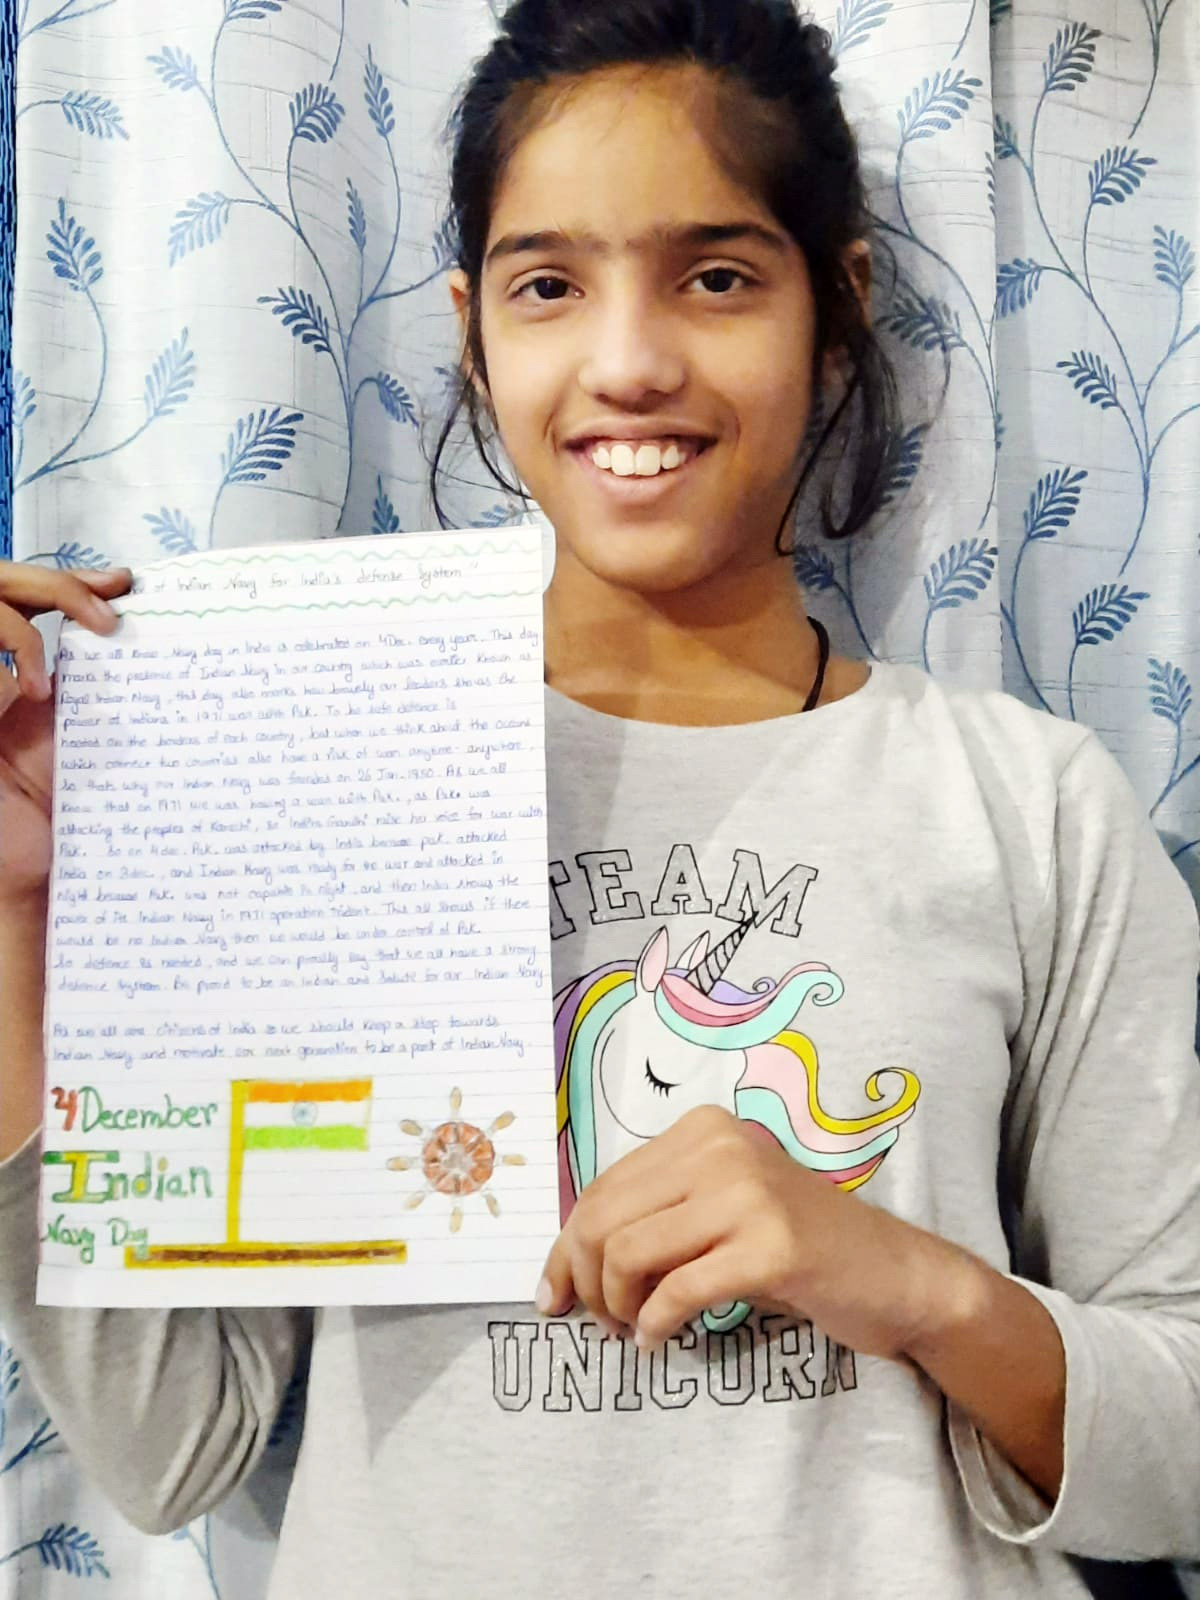 of Indian Navy for India's defense System"
As we all know, Navy day in India is celebrated on 4 Dec. every year. This day
marks the presence of Indian Navy in our country which was earlier known as
Royal Indian Navy, this day also marks how bravely our leaders shows the
power of Indians in 1971 war with Pak. To be safe defence is
needed on the borders of each country, but when we think about the oceans
which connect two countries also have a risk of war anytime - anywhere,
So thats why our Indian Navy was founded on 26 Jan. 1950. As we all
know that on 1971 we was having a war with Pak., as Pak. was
attacking the peoples of Karachi, so Indira Gandhi raise her voice for war with
Pak. So on 4 dec. Pak. was attacked by India because pak. attacked
India on 3 dec., and Indian Navy was ready for the war and attacked in
night because Pak. was not capable in night, and then India shows the
power of its Indian Navy in 1971 operation trident. This all shows if there
would be no Indian Navy then we would be under control of Pak.
So defence is needed, and we can proudly say that we all have a strong
defence System. Be proud to be an Indian and Salute for our Indian Navy
As we all are citizens of India so we should keep a step towards
Indian Navy and motivate our next generation to be a part of Indian Navy.
4 December
Indian
Navy Day
TEAM
UNICORN